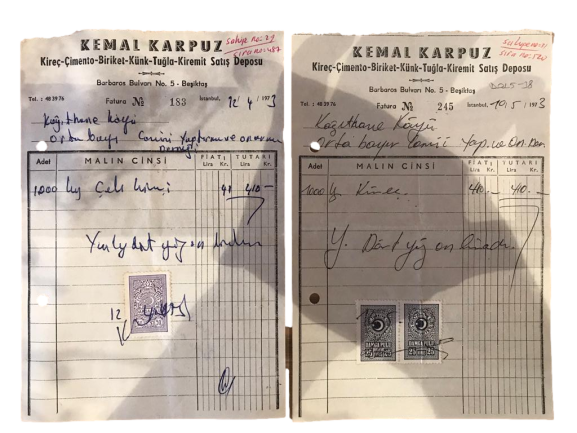 KEMAL KARPUZ
Kireç-Çimento-Biriket-Künk-Tuğla-Kiremit Satış Deposu
Barbaros Bulvarı No. 5 - Beşiktaş
Tel. : 48 39 76 Fatura No 183 İstanbul, 12 / 4 / 1973
Kağıthane köyü
Orta bayır Camii Yaptırma ve onarma
Derneği
Adet MALIN CİNSİ FİATI Lira Kr. TUTARI Lira Kr.
1000 kg 410 —
Yalnız dört yüz on liradır
12
KEMAL KARPUZ
Kireç-Çimento-Biriket-Künk-Tuğla-Kiremit Satış Deposu
Barbaros Bulvarı No. 5 - Beşiktaş
Tel. : 48 39 76 Fatura No 245 İstanbul, 19 / 5 / 1973
Kağıthane Köyü
Orta bayır Camii Yap. ve On. Der.
Adet MALIN CİNSİ FİATI Lira Kr. TUTARI Lira Kr.
1000 Kireç 410 —
Y. Dört yüz on liradır.
DAMGA PULU DAMGA PULU
25 25